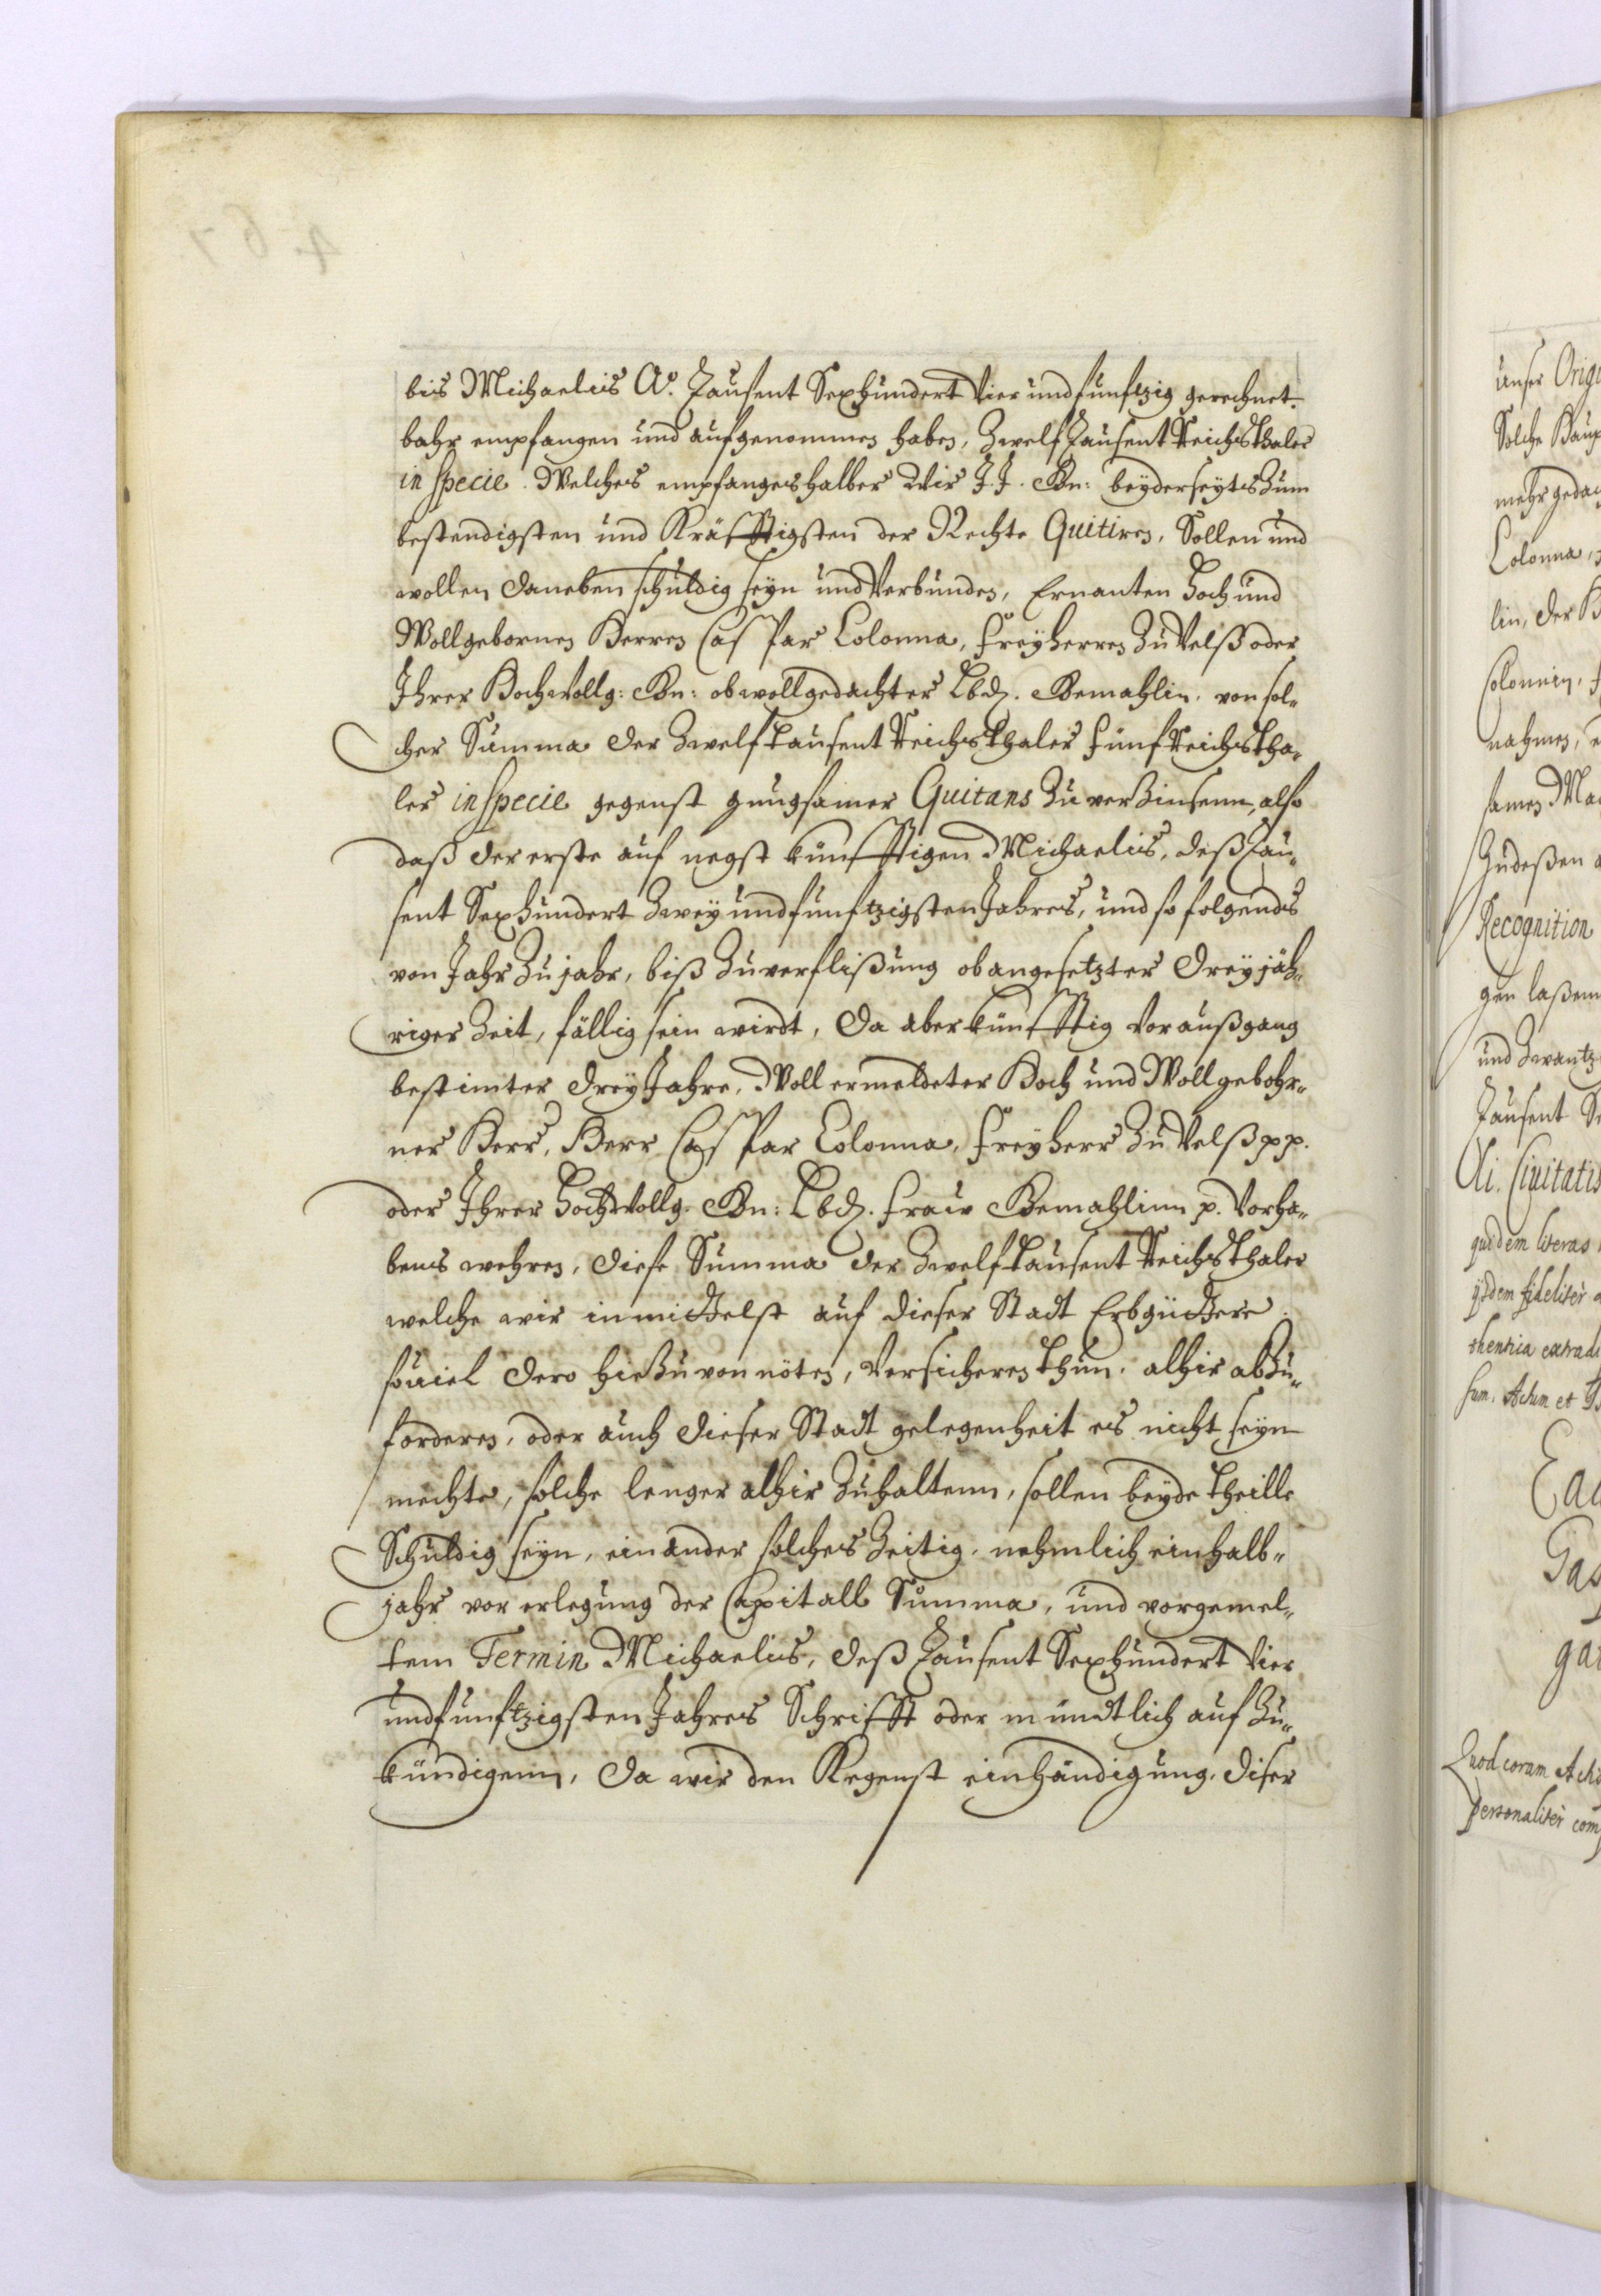 bis Michaelis Aº. Tausent Sexhundert vier und funftzig gerechnet.
bahr empfangen und aufgenommen haben, Zwelf Tausent Reichsthaler
in specie. Welches empfanges halber Wir J. J. Gn: beyderseyts zum
bestendigsten und Kräfftigsten der Rechte Quitiren, Sollen und
wollen daneben schuldig seyn und Verbunden, Ernanten Hoch und
Wollgebornen Herren Caspar Colonna, Freyherren zu Velß oder
Ihrer Hochwollg: Gn: obwollgedachter Lbd. Gemahlin. von sol-
cher Summa der Zwelf tausent Reichsthaler fünf Reichstha-
ler in specie gegenst gnugsamer Quitans zu verzinsenn, also
daß der erste auf negst künfftigen Michaelis, deß Tau-
sent Sexhundert Zwey und funftzigsten Jahres, und so folgends
von Jahr zu jahr, biß zu verflißung obangesetzter dreyjäh-
riger Zeit, fällig sein wirdt, Da aber künfftig vor außgang
bestimter drey Jahre, Woll ermeldeter Hoch und Wollgebohr-
ner Herr, Herr Caspar Colonna, Freyherr zu Velß pp.
oder Ihrer Hochwollg. Gn: Lbd. Fraw Gemahlinn p. Vorha-
bens wehren, diese Summa der Zwelf tausent Reichsthaler
welche wir inmittelst auf dieser Stadt Erbgüttere
souiel dero hiezu von nöten, Versicheren thun, alhir abzu-
forderen, oder auch dieser Stadt gelegenheit es nicht seyn
mechte, solche lenger alhir zuhaltenn, sollen beyde theille
Schuldig seyn, einander solches Zeitig, nehmlich ein halb-
jahr vor erlegung der Capitall Summa, und vorgemel-
tem Termin Michaelis, deß Tausent Sexhundert vier
und funftzigsten Jahres Schrifft oder mündtlich auf zu-
kündigenn, Da wir den Kegenst einhändigung, diser
unser Orig
Solche Haup
mehrgeda
Colonna,
lin, der
Colonnin,
nahmen,
samen Ma
Zudeßen
Recognition
gen laßen
und Zwantz
Tausent Se
Civitatis
quidem literas
ijsdem fideliter
thentia extradi
sum. Actum et
Quod coram Acti
personaliter com